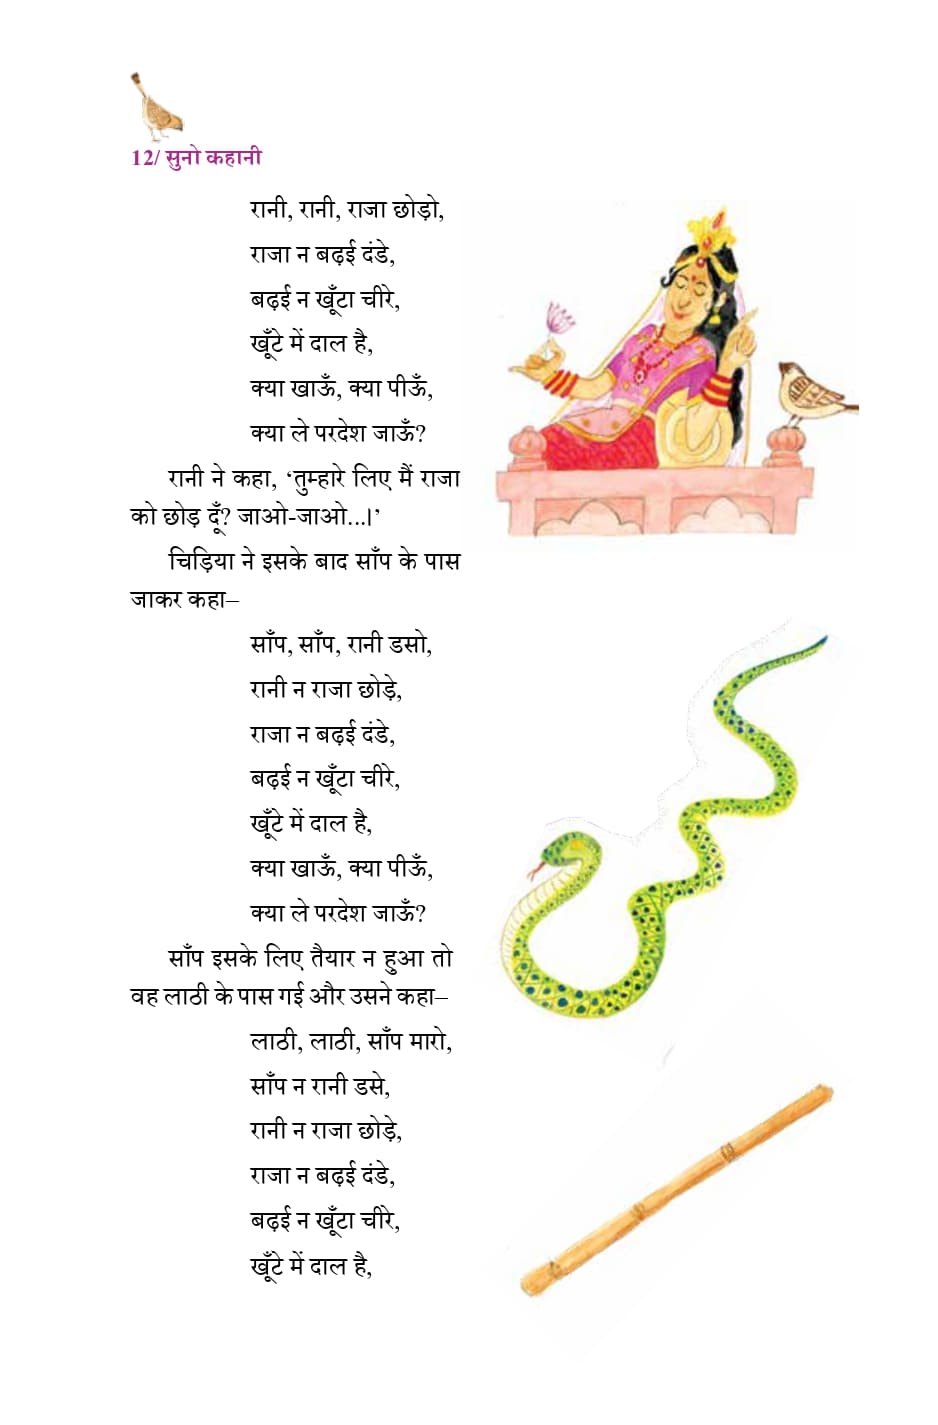 12/ सुनो कहानी
रानी, रानी, राजा छोड़ो,
राजा न बढ़ई दंडे,
बढ़ई न खूँटा चीरे,
खूँटे में दाल है,
क्या खाऊँ, क्या पीऊँ,
क्या ले परदेश जाऊँ?
रानी ने कहा, ‘तुम्हारे लिए मैं राजा
को छोड़ दूँ? जाओ-जाओ...।’
चिड़िया ने इसके बाद साँप के पास
जाकर कहा–
साँप, साँप, रानी डसो,
रानी न राजा छोड़े,
राजा न बढ़ई दंडे,
बढ़ई न खूँटा चीरे,
खूँटे में दाल है,
क्या खाऊँ, क्या पीऊँ,
क्या ले परदेश जाऊँ?
साँप इसके लिए तैयार न हुआ तो
वह लाठी के पास गई और उसने कहा–
लाठी, लाठी, साँप मारो,
साँप न रानी डसे,
रानी न राजा छोड़े,
राजा न बढ़ई दंडे,
बढ़ई न खूँटा चीरे,
खूँटे में दाल है,